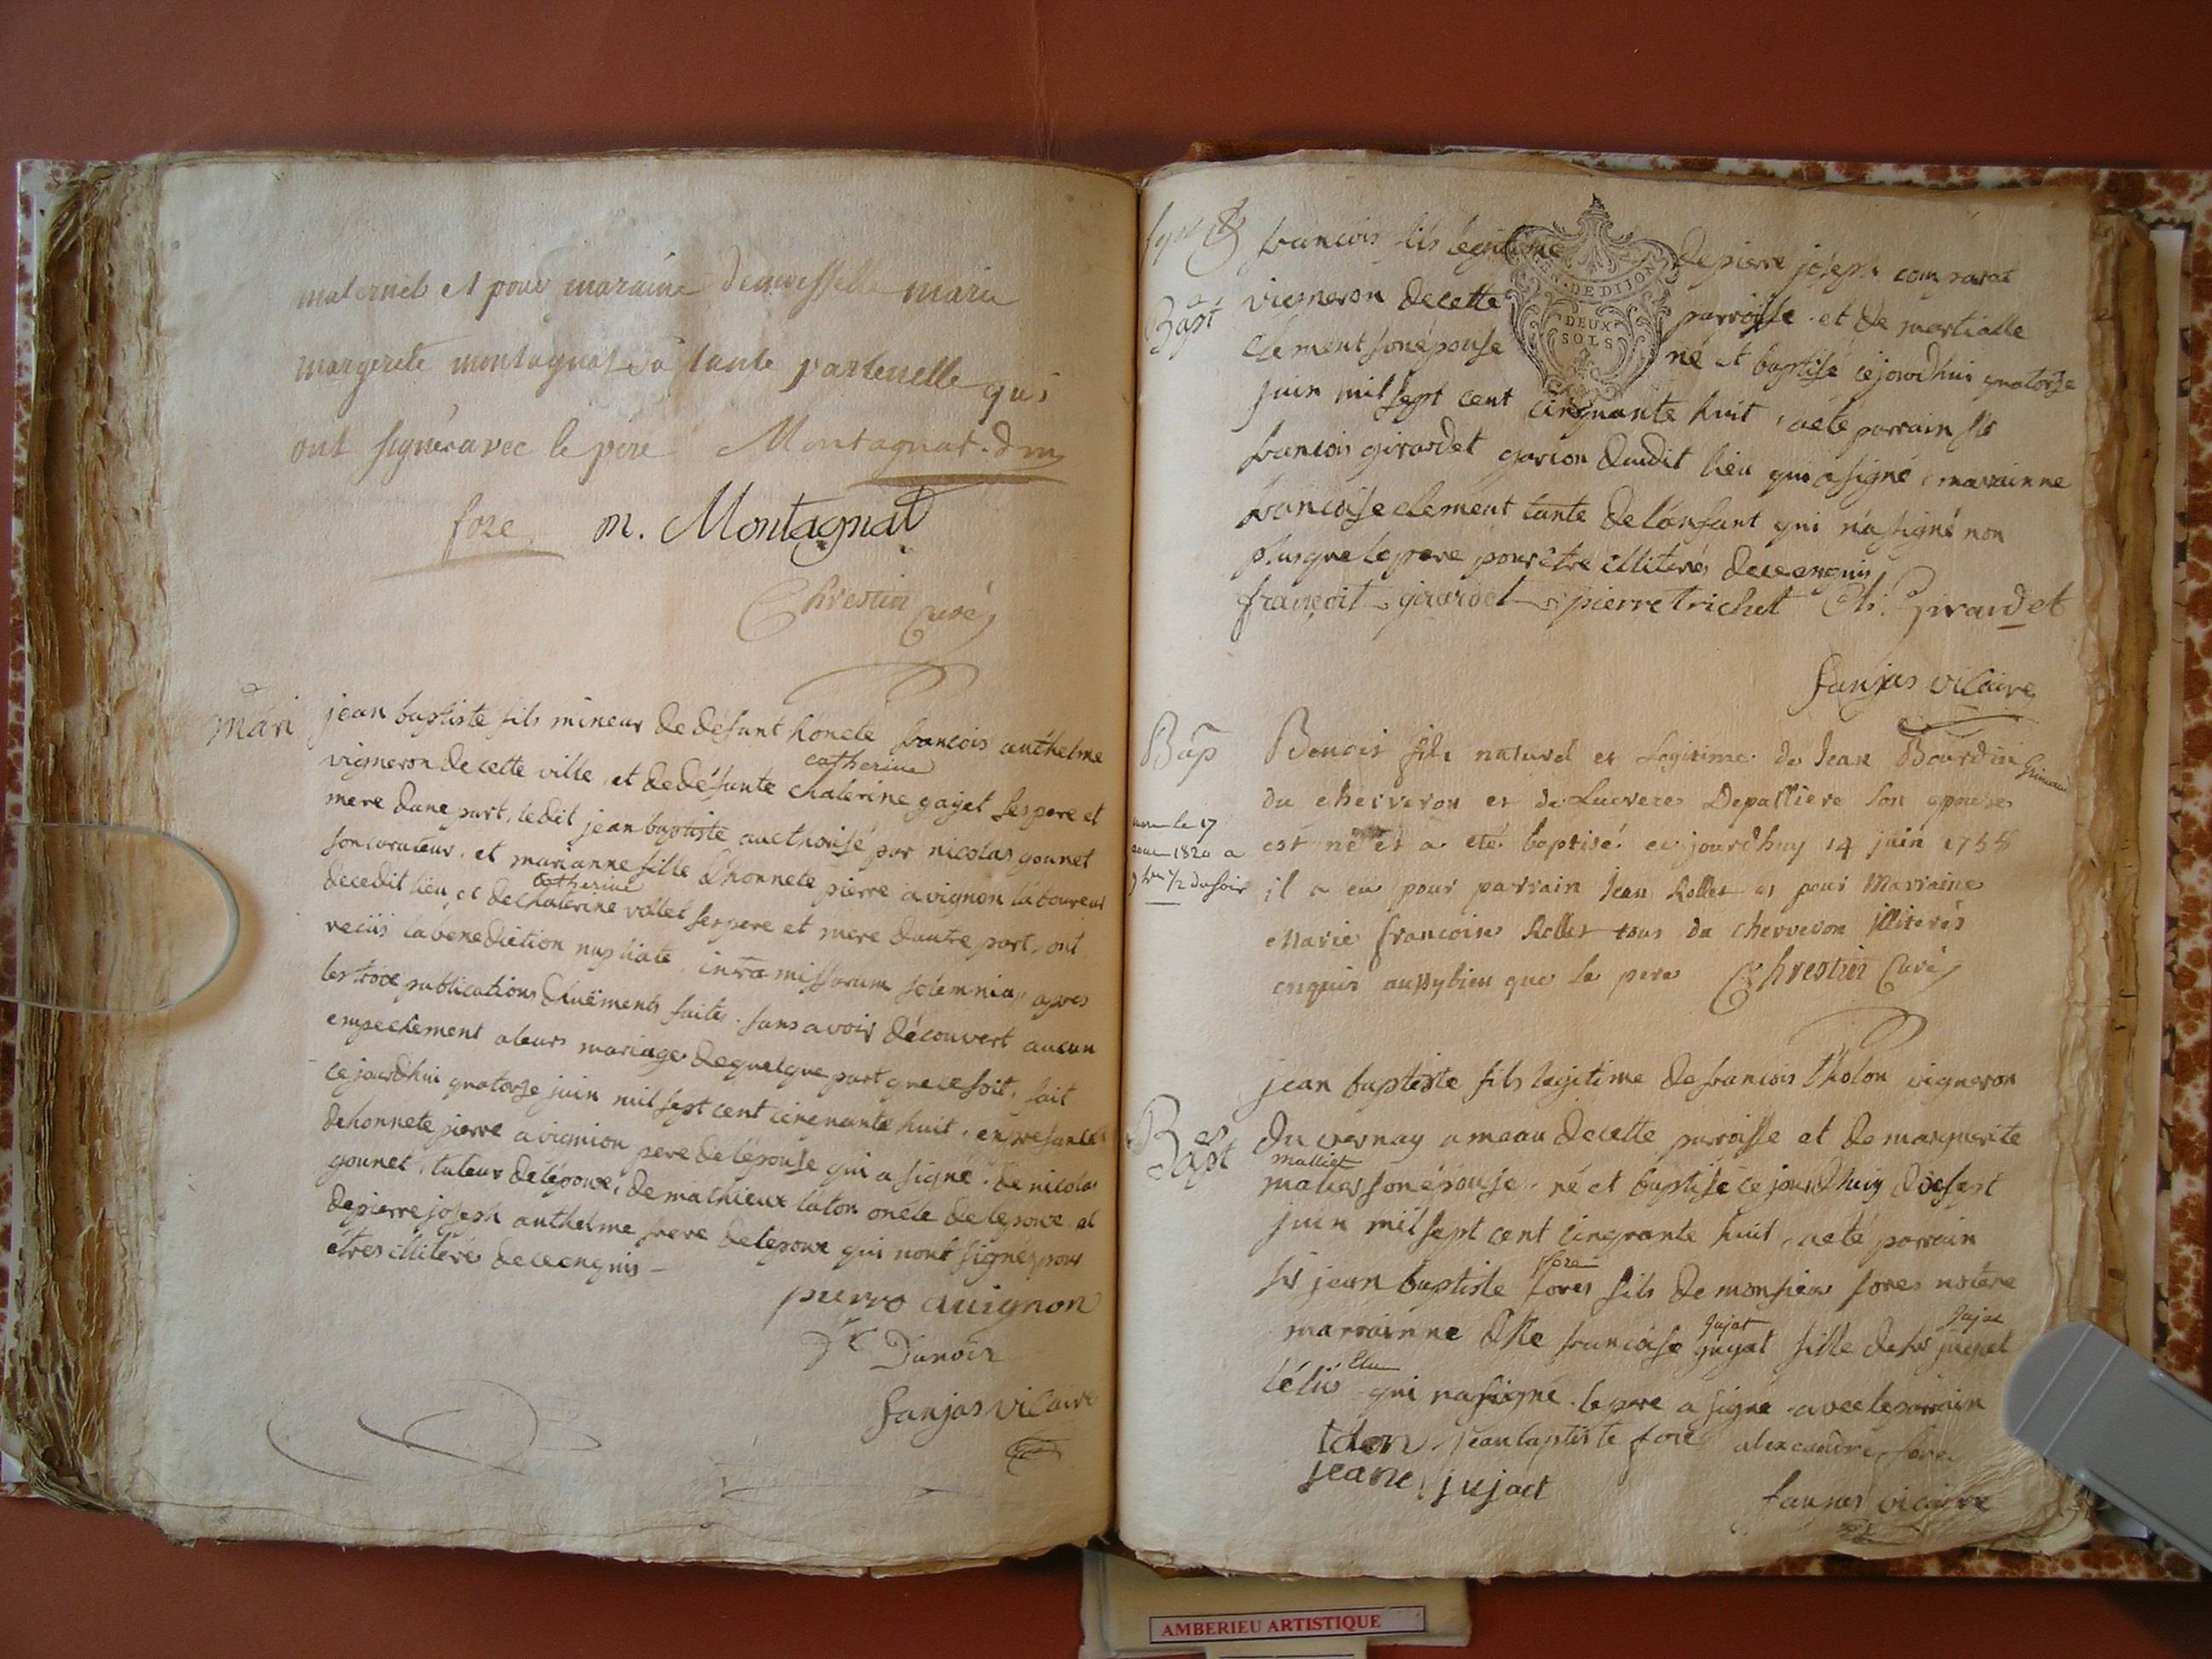 maternel et pour maraine demoisselle marie
margerete montagnat sa tante parternelle qui
ont signer avec le pere Montagnat. dm
foze m. Montagnat
Chrestin Curé
Mari
jean baptiste fils mineur de defunt honete francois anthelme
vigneron de cette ville, et de défunte chaterine gayet ses pere et
catherine
mere dune part, ledit jean baptiste aucthorisé par nicolas gounet
son curateur, et marianne fille d'honnete pierre avignon laboureur
decedit lieu, et de chaterine vollet ses pere et mere dautre part, ont
catherine
recüs la benediction nuptiale, intra missarum solemnia, apres
les trois publications düements faites. sans avoir découvert aucun
empechement a leurs mariage de quelque part que ce soit, fait
ce jourdhui quatorse juin mil sept cent cinquante huit, en presance
de honnete pierre avignion pere de lepouse qui a signé. de nicolas
gounet, tuteur de lépoux, de mathieux laton oncle de lepoux et
de pierre joseph anthelme frere de lepoux qui nont signés pour
etres illiterés de ce enquis
pierre avignon
Dunoir
fanjas vicaire
Bapt
francois fils legitime de pierre joseph comparat
vigneron de cette parroisse. et de martialle
clement son épouse né et baptisé cejourdhui quatorse
GEN. DE DIJON
DEUX
SOLS
juin mil sept cent cinquante huit, a été parrain sr
francois girardet garcon dudit lieu qui a signé, marrainne
francoise clement tante de l'ansant qui n'a signé non
plus que le pere pour etre illiterés de ce enquis
françoit girardet pierre trichet Ch. Girardet
fanjas vicaire
Bap
Benoit fils naturel et legitime de Jean Bourdin
du cherveron et de Lucrece Depalliere son epouse
le 17
1820 a
1/2 du soir
est né et a eté baptisé ce jourdhuy 14 juin 1758
il a eu pour parrain Jean Rollet et pour Marraine
Marie francoise Rollet tous du cherveron illiterés
enquis aussy bien que le pere Chrestin Curé
Bapt
jean baptiste fils legitime de francois tholon vigneron
du vernay ameau de cette parroisse et de marguerite
malliet
malier son épouse. né et baptisé ce jourdhuy diesept
juin mil sept cent cinquante huit, a eté parrain
sr jean baptiste fores fils de monsieur fores notere
foze
marrainne dlle francoise gugat fille de sr jugat
Jujat
Jujat
l'élü qui n'a signé. le pere a signé avec le parrain
Elu
tolon jean baptiste foze alexandre foze
jeane jujact
fanjas vicaire
AMBERIEU ARTISTIQUE